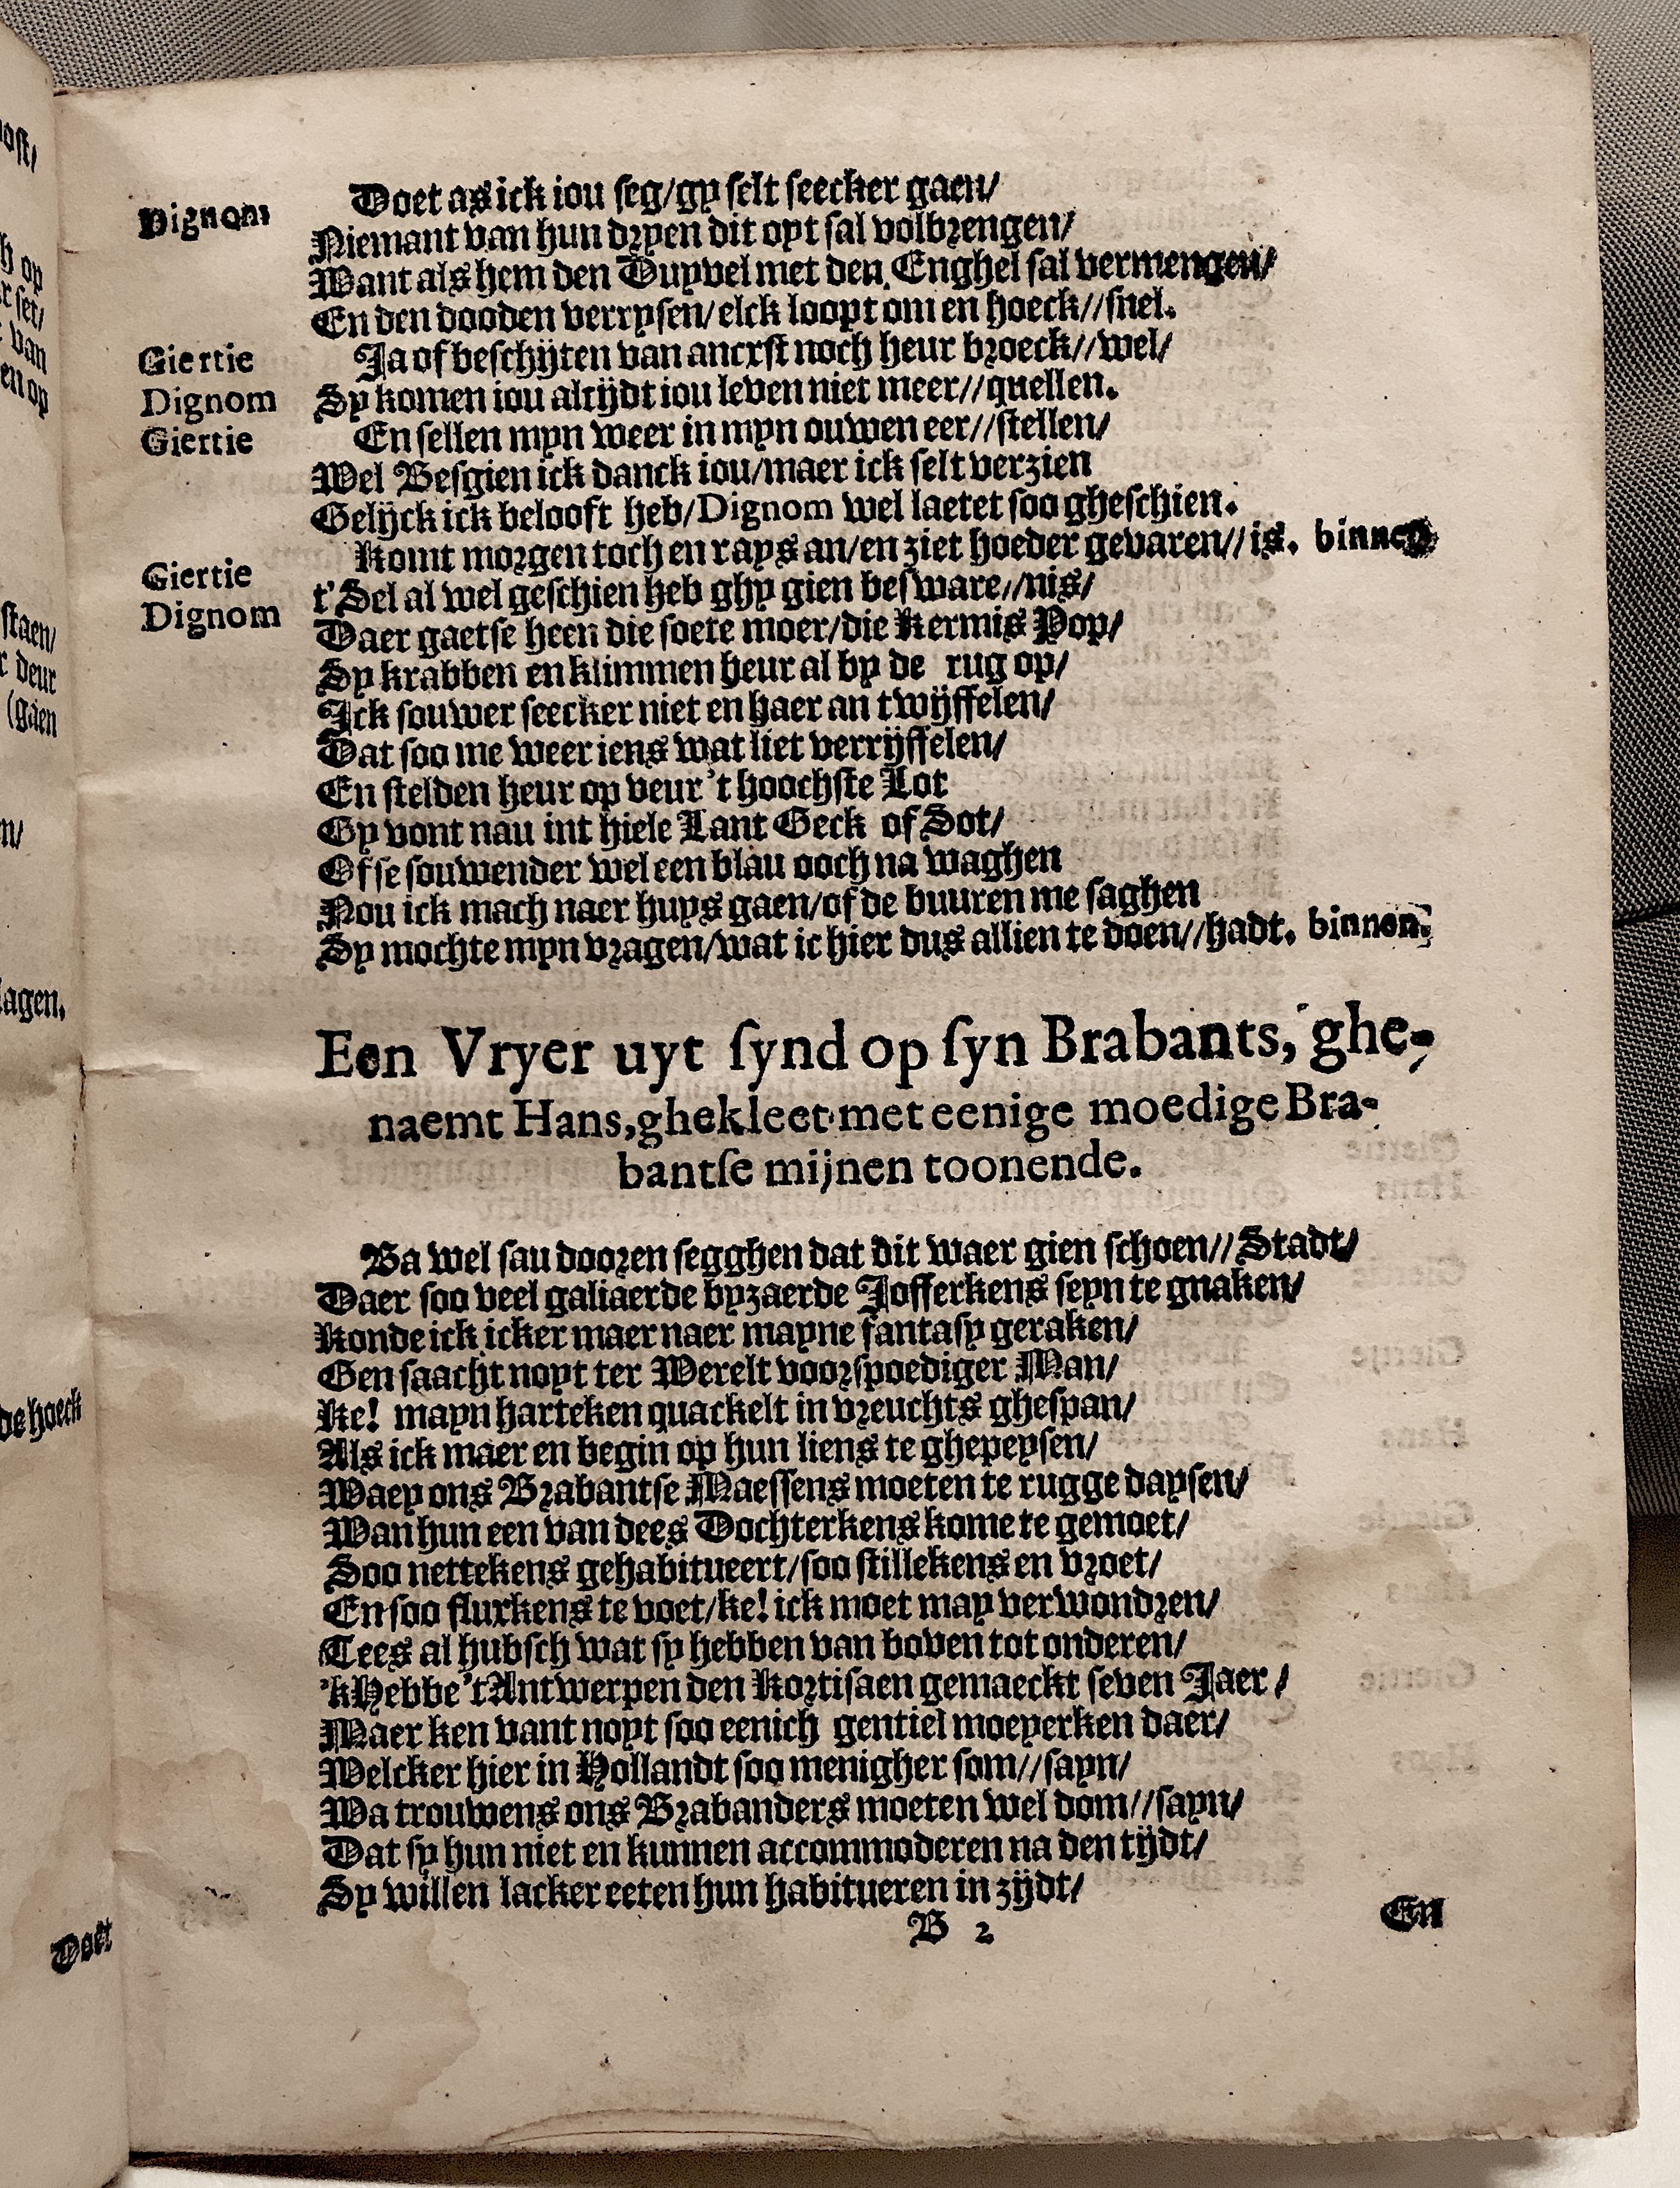 Dignom Doet as ick iou seg/gy selt seecker gaen/
Niemant van hun dryen dit oyt sal volbrengen/
Want als hem den Duyvel met den Enghel sal vermengen/
En den dooden verrysen/elck loopt om en hoeck//snel.
Giertie Ja of beschijten van ancxst noch heur broeck//wel/
Dignom Sy komen iou altijdt iou leven niet meer//quellen.
Giertie En sellen myn weer in myn ouwen eer//stellen/
Wel Besgien ick danck iou/maer ick selt verzien
Gelijck ick belooft heb/Dignom wel laetet soo gheschien.
Giertie Komt morgen toch en rays an/en ziet hoeder gevaren//is. binnen
Dignom t'Sel al wel geschien heb ghy gien besware//nis/
Daer gaetse heen die soete moer/die Kermis Pop/
Sy krabben en klimmen heur al by de rug op/
Ick souwer seecker niet en haer an twijffelen/
Dat soo me weer iens wat liet verrijffelen/
En stelden heur op veur 't hoochste Lot
Gy vont nau int hiele Lant Geck of Sot/
Of se souwender wel een blau ooch na waghen
Nou ick mach naer huys gaen/of de buuren me saghen
Sy mochte myn vragen/wat ic hier dus allien te doen//hadt. binnen.
Een Vryer uyt synd op syn Brabants, ghe-
naemt Hans, ghekleet met eenige moedige Bra-
bantse mijnen toonende.
Ba wel sau dooren segghen dat dit waer gien schoen//Stadt/
Daer soo veel galiaerde byzaerde Jofferkens seyn te gnaken/
Konde ick icker maer naer mayne fantasy geraken/
Gen saacht noyt ter Werelt voorspoediger Man/
Ke! mayn harteken quackelt in vreuchts ghespan/
Als ick maer en begin op hun liens te ghepeysen/
Waey ons Brabantse Maessens moeten te rugge daysen/
Wan hun een van dees Dochterkens kome te gemoet/
Soo nettekens gehabitueert/soo stillekens en vroet/
En soo flurkens te voet/ke! ick moet may verwondren/
Tees al hubsch wat sy hebben van boven tot onderen/
'kHebbe 't Antwerpen den Kortisaen gemaeckt seven Jaer/
Maer ken vant noyt soo eenich gentiel moeyerken daer/
Welcker hier in Hollandt soo menigher som//sayn/
Wa trouwens ons Brabanders moeten wel dom//sayn/
Dat sy hun niet en kunnen accommoderen na den tijdt/
Sy willen lacker eeten hun habitueren in zijdt/
B 2 En